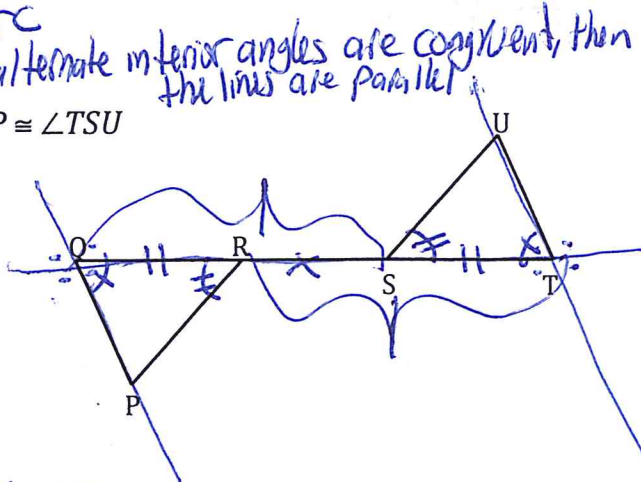 alternate interior angles are congruent, then
the lines are parallel
P ≅ ∠TSU
U
Q R
S T
P